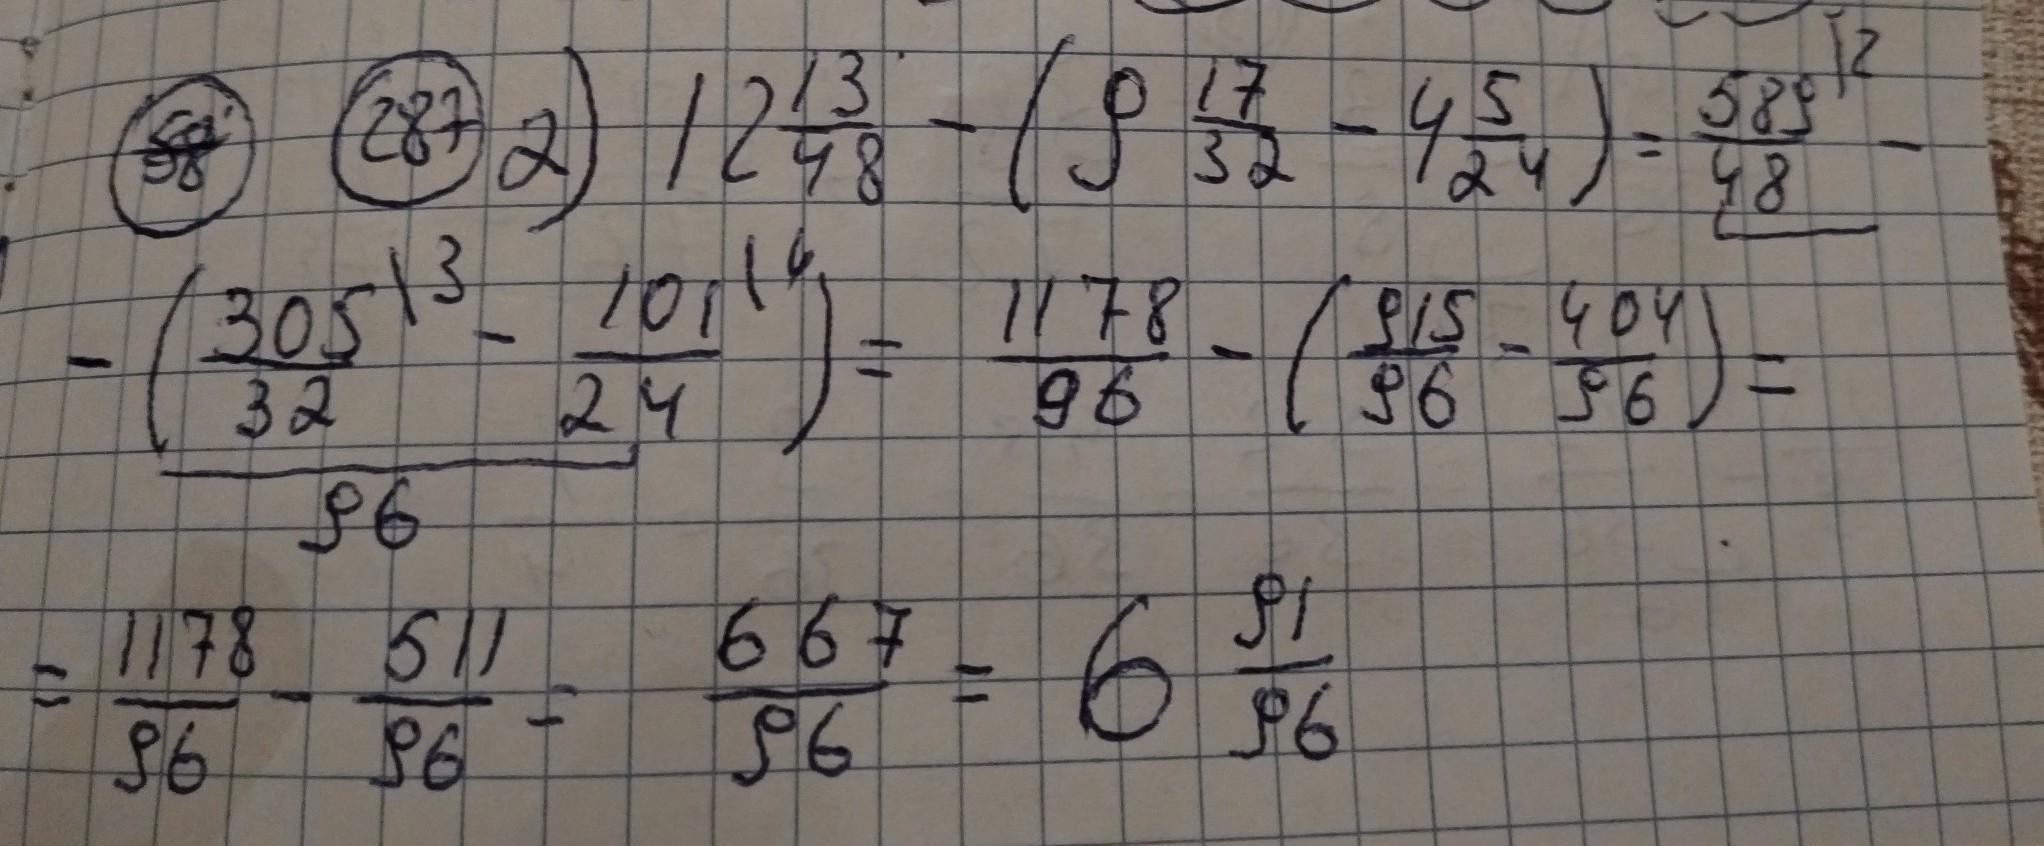 287 2) 12 13/48 - (9 17/32 - 4 5/24) = 589\2/48 -
- (305\3/32 - 101\4/24) = 1178/96 - (915/96 - 404/96) =
96
= 1178/96 - 511/96 = 667/96 = 6 91/96